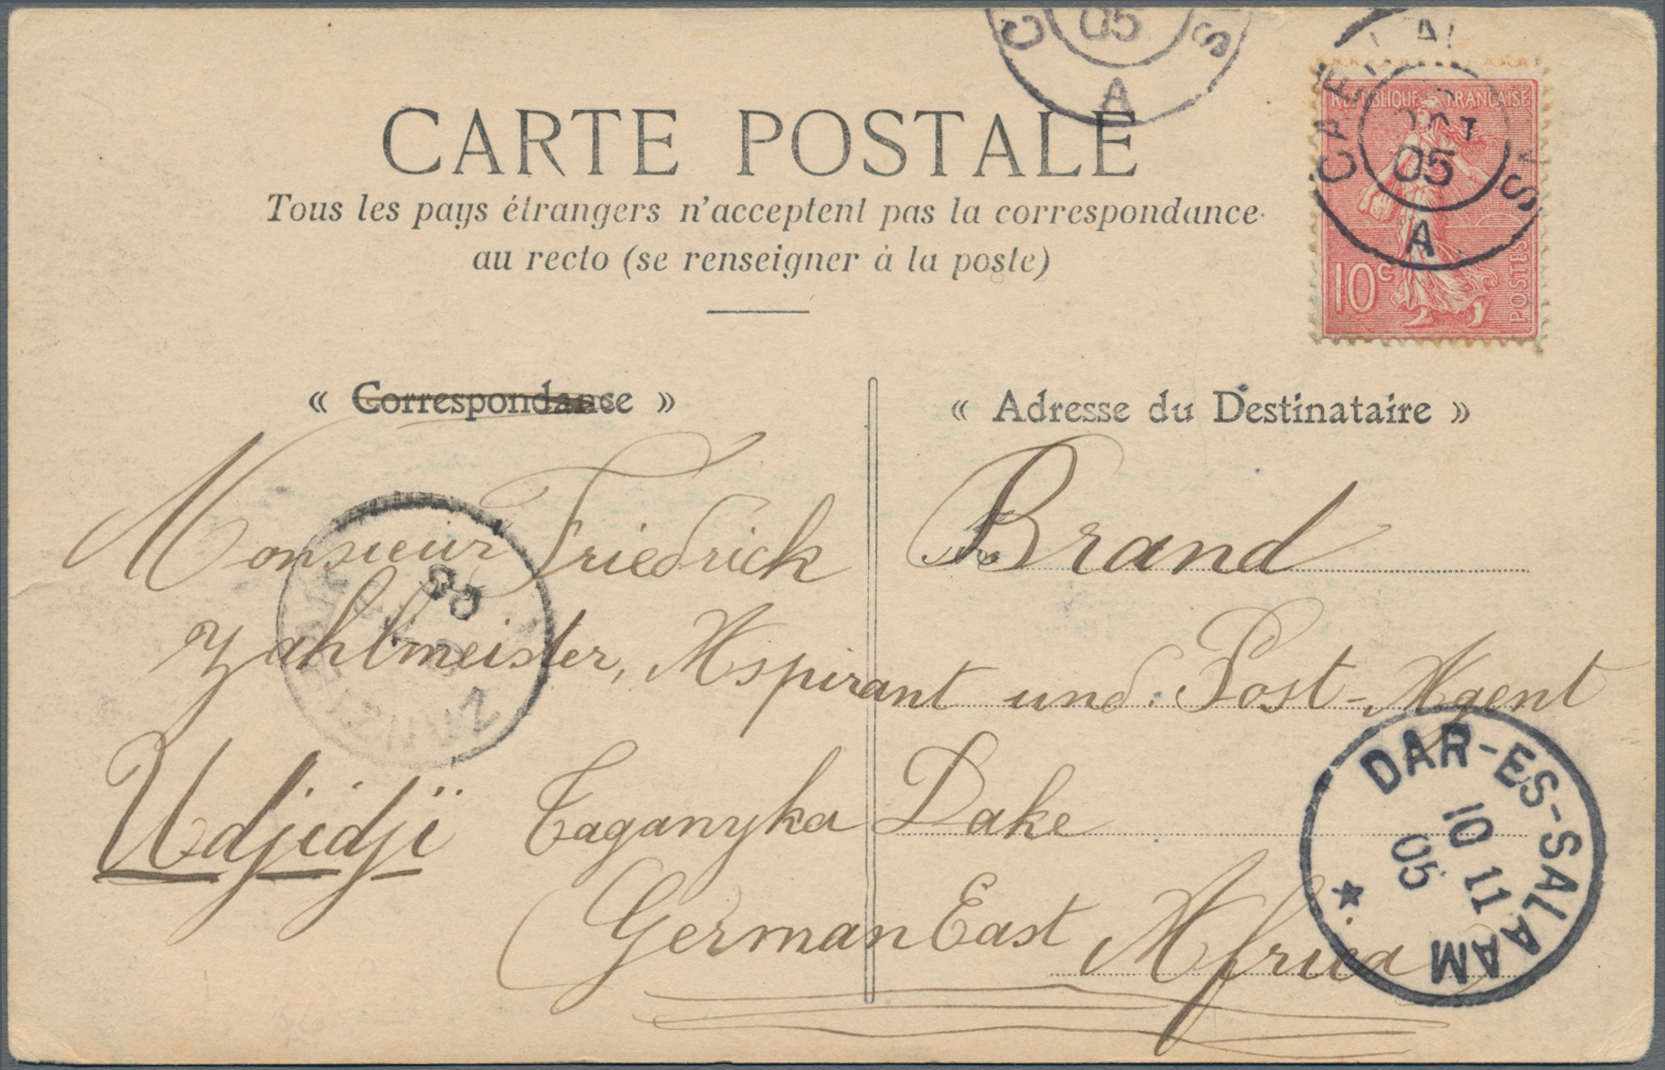 C 05 S
A
CARTE POSTALE
Tous les pays étrangers n'acceptent pas la correspondance
au recto (se renseigner à la poste)
REPUBLIQUE FRANÇAISE
10c
POSTES
OCT
05
A
« Correspondance »
« Adresse du Destinataire »
Monsieur Friedrich Brand
Zahlmeister, Aspirant und Post-Agent
Udjidji Taganyka Lake
German East Africa
DAR-ES-SALAAM
10 11
05